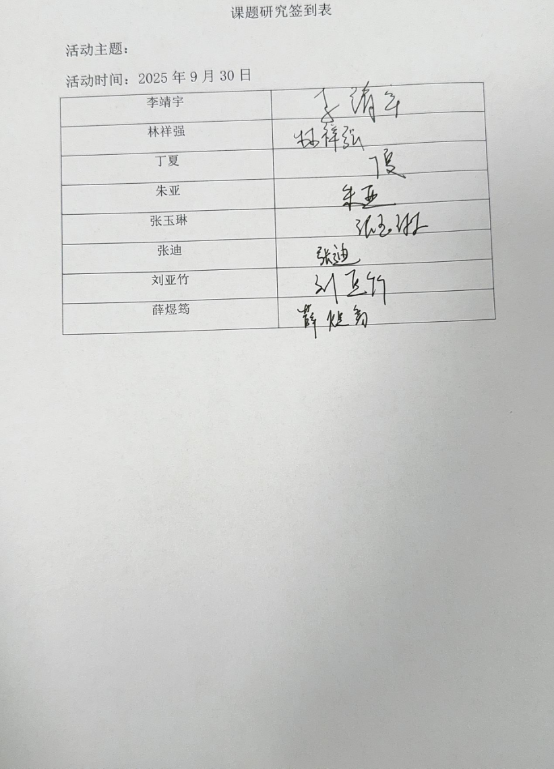 课题研究签到表
活动主题：
活动时间：2025 年 9 月 30 日
李靖宇 李靖宇
林祥强 林祥强
丁夏 丁夏
朱亚 朱亚
张玉琳 张玉琳
张迪 张迪
刘亚竹 刘亚竹
薛煜筠 薛煜筠